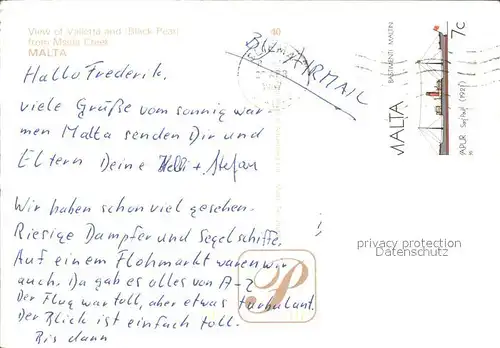 View of Valletta and (Black Pearl)
from Marsa Creek
MALTA
40
By AIRMAIL
MALTA
BASTIMENTI MALTIN
7c
Hallo Frederik,
viele Grüße vom sonnig war-
men Malta senden Dir und
Eltern Deine Helli + Stefan
Wir haben schon viel gesehen.
Riesige Dampfer und Segelschiffe.
Auf einem Flohmarkt waren wir
auch. Da gab es alles von A-Z
Der Flug war toll, aber etwas turbulant.
Der Blick ist einfach toll.
Bis dann
P
privacy protection
Datenschutz